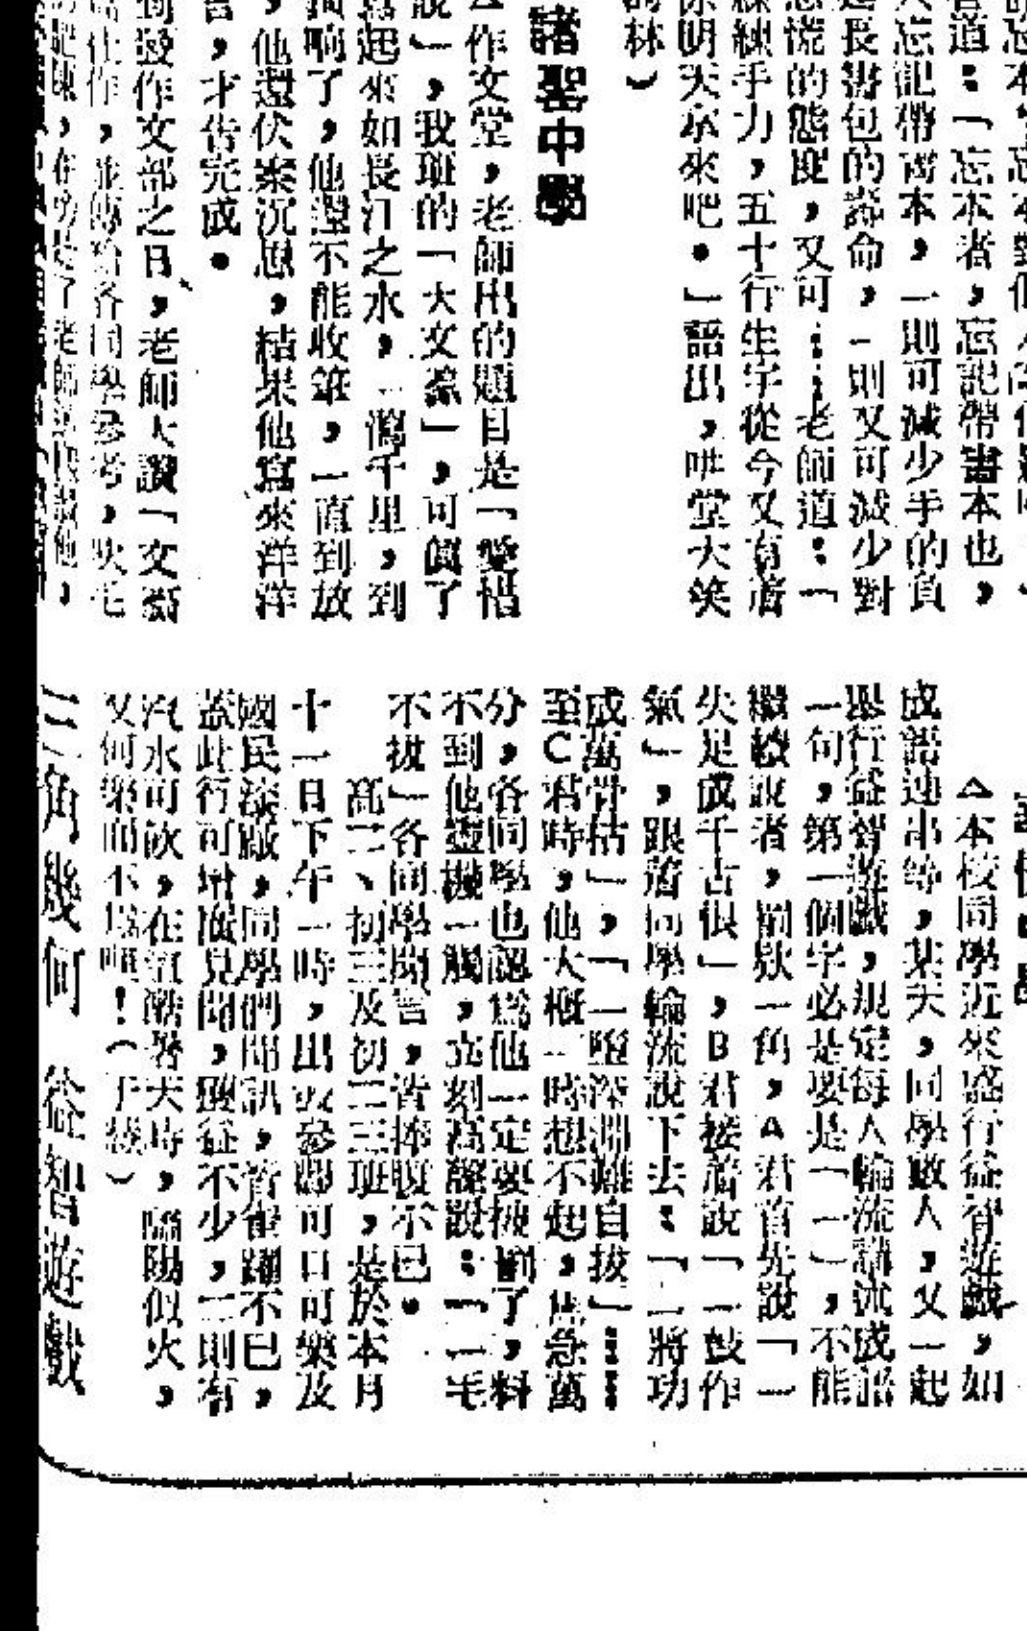 忘本者,忘記帶書本也,
人忘記帶書本,一則可減少手的負
長書包的壽命,一則又可減少對
慌的態度,又可……老師道:「
練練手力,五十行生字從今又有着
你明天拿來吧。」語出,哄堂大笑
林)
諸聖中學
△作文堂,老師出的題目是「愛惜
說」,我班的「大文豪」,可眞了
寫起來如長江之水,一瀉千里,到
响了,他還不能收筆,一直到放
,他還伏案沉思,結果他寫來洋洋
言,才告完成。
到發作文部之日,老師大讚「文豪
佳作,並傳給各同學參考,
△本校同學近來盛行益智遊戲,如
成語連串等,某天,同學數人,又一起
擧行益智遊戲,規定每人輪流講述成語
一句,第一個字必是要是「一」,不能
繼續說者,罰欵一角,A君首先說「一
失足成千古恨」,B君接着說「一鼓作
氣」,跟着同學輪流說下去:「一將功
成萬骨枯」,「一墮深淵難自拔」……
至C君時,他大概一時想不起,焦急萬
分,各同學也認爲他一定要被罰了,料
不到他靈機一觸,立刻高聲說:「一毛
不拔」各同學聞言,皆捧腹不已。
高二、初三及初二三班,是於本月
十一日下午一時,出發參觀可口可樂及
國民漆廠,同學們聞訊,皆雀躍不已,
蓋此行可增廣見聞,獲益不少,二則有
汽水可飲,在這酷暑天時,驕陽似火,
又何樂而不爲哩!(于
三角幾何 益智遊戲